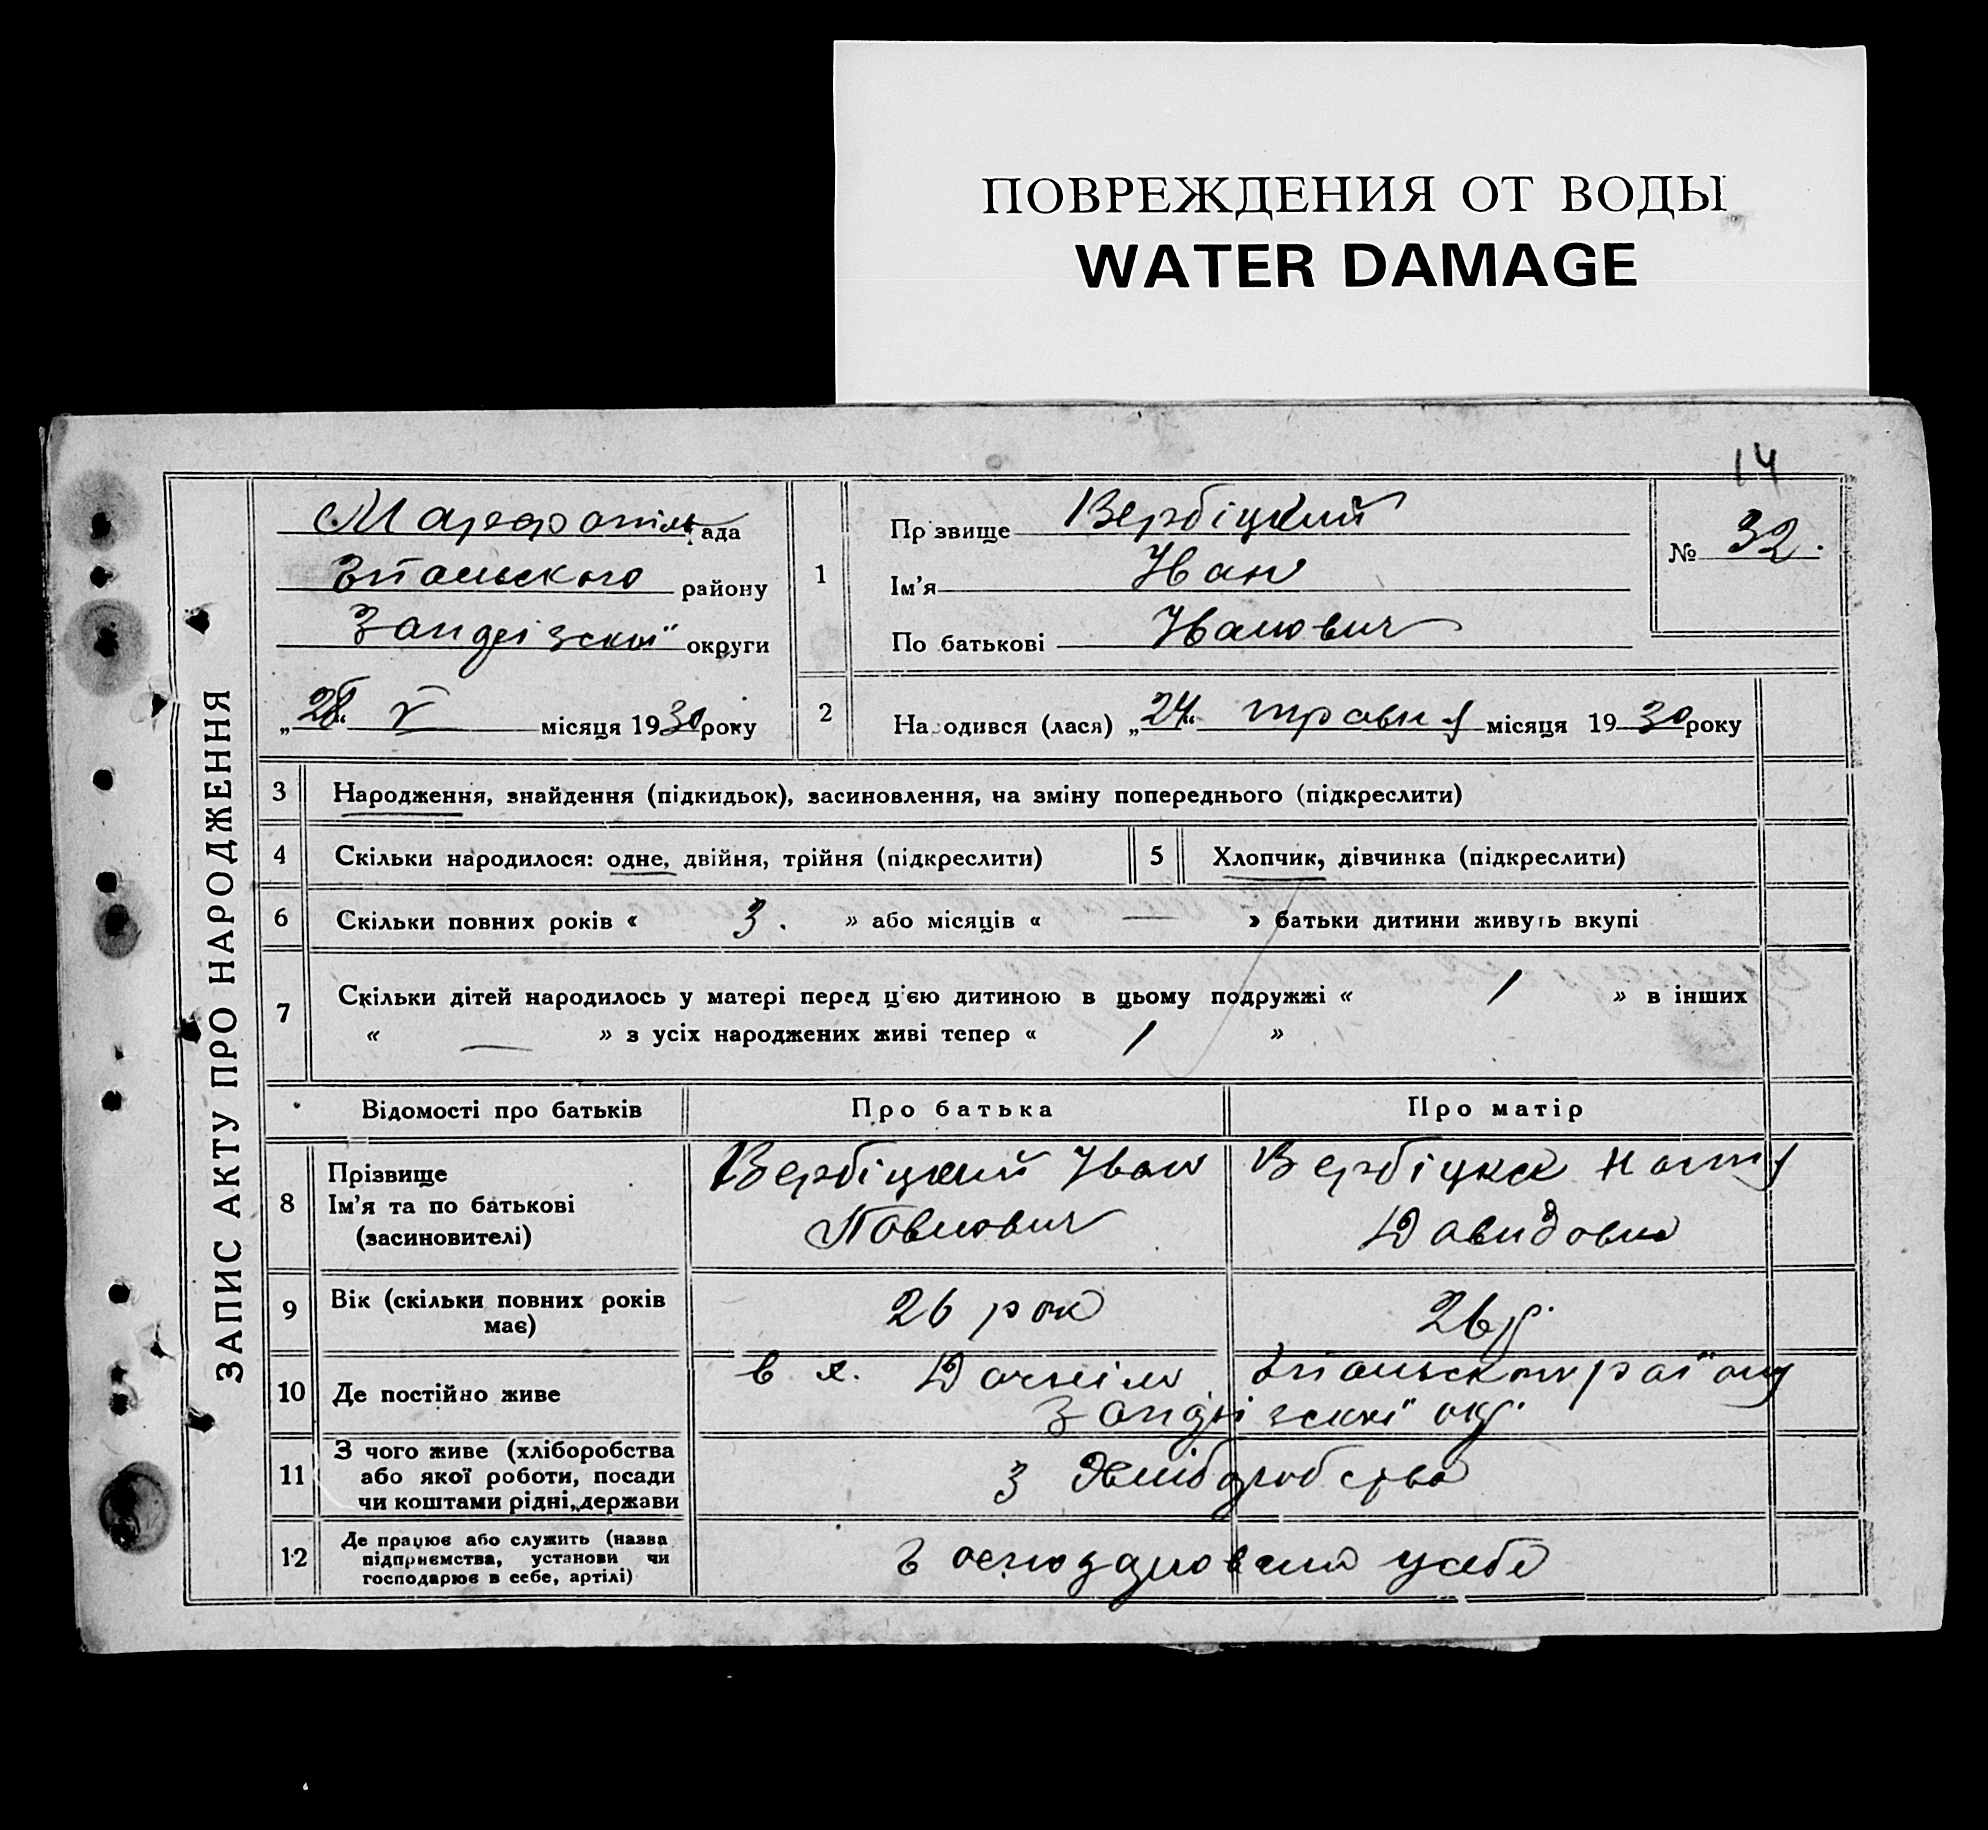 ПОВРЕЖДЕНИЯ ОТ ВОДЫ
WATER DAMAGE
14
ЗАПИС АКТУ ПРО НАРОДЖЕННЯ
рада
району
округи
„28“ V місяця 1930 року
1
Прізвище Вербіцкий
Ім'я Иван
По батькові Иванович
№ 32.
2
Народився (лася) „24“ травня місяця 1930 року
3 Народження, знайдення (підкидьок), засиновлення, на зміну попереднього (підкреслити)
4 Скільки народилося: одне, двійня, трійня (підкреслити)
5 Хлопчик, дівчинка (підкреслити)
6 Скільки повних років « 3. » або місяців « — » батьки дитини живуть вкупі
7 Скільки дітей народилось у матері перед ц'єю дитиною в цьому подружжі « 1 » в інших
« — » з усіх народжених живі тепер « 1 »
Відомості про батьків Про батька Про матір
8 Прізвище
Ім'я та по батькові
(засиновителі)
Вербіцкий Иван
Павлович
Вербіцка
Давидовна
9 Вік (скільки повних років
має)
26 рок
26 р.
10 Де постійно живе
в х.
11 З чого живе (хліборобства
або якої роботи, посади
чи коштами рідні, держави
З Хліборобства
12 Де працює або служить (назва
підприємства, установи чи
господарює в себе, артілі)